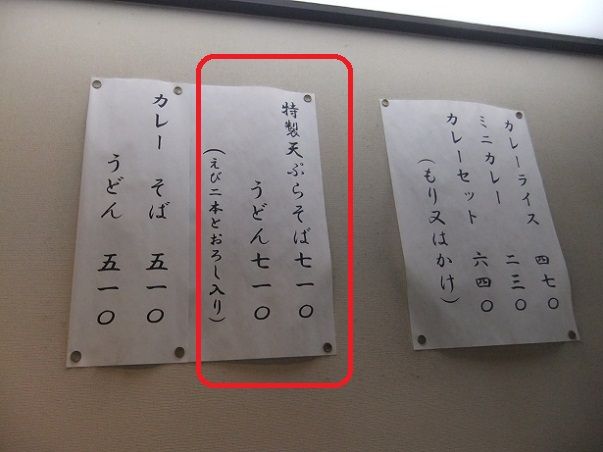 カレーライス 四七〇
ミニカレー 二三〇
カレーセット 六四〇
(もり又はかけ)
特製天ぷらそば七一〇
うどん七一〇
(えび二本とおろし入り)
カレー そば 五一〇
うどん 五一〇